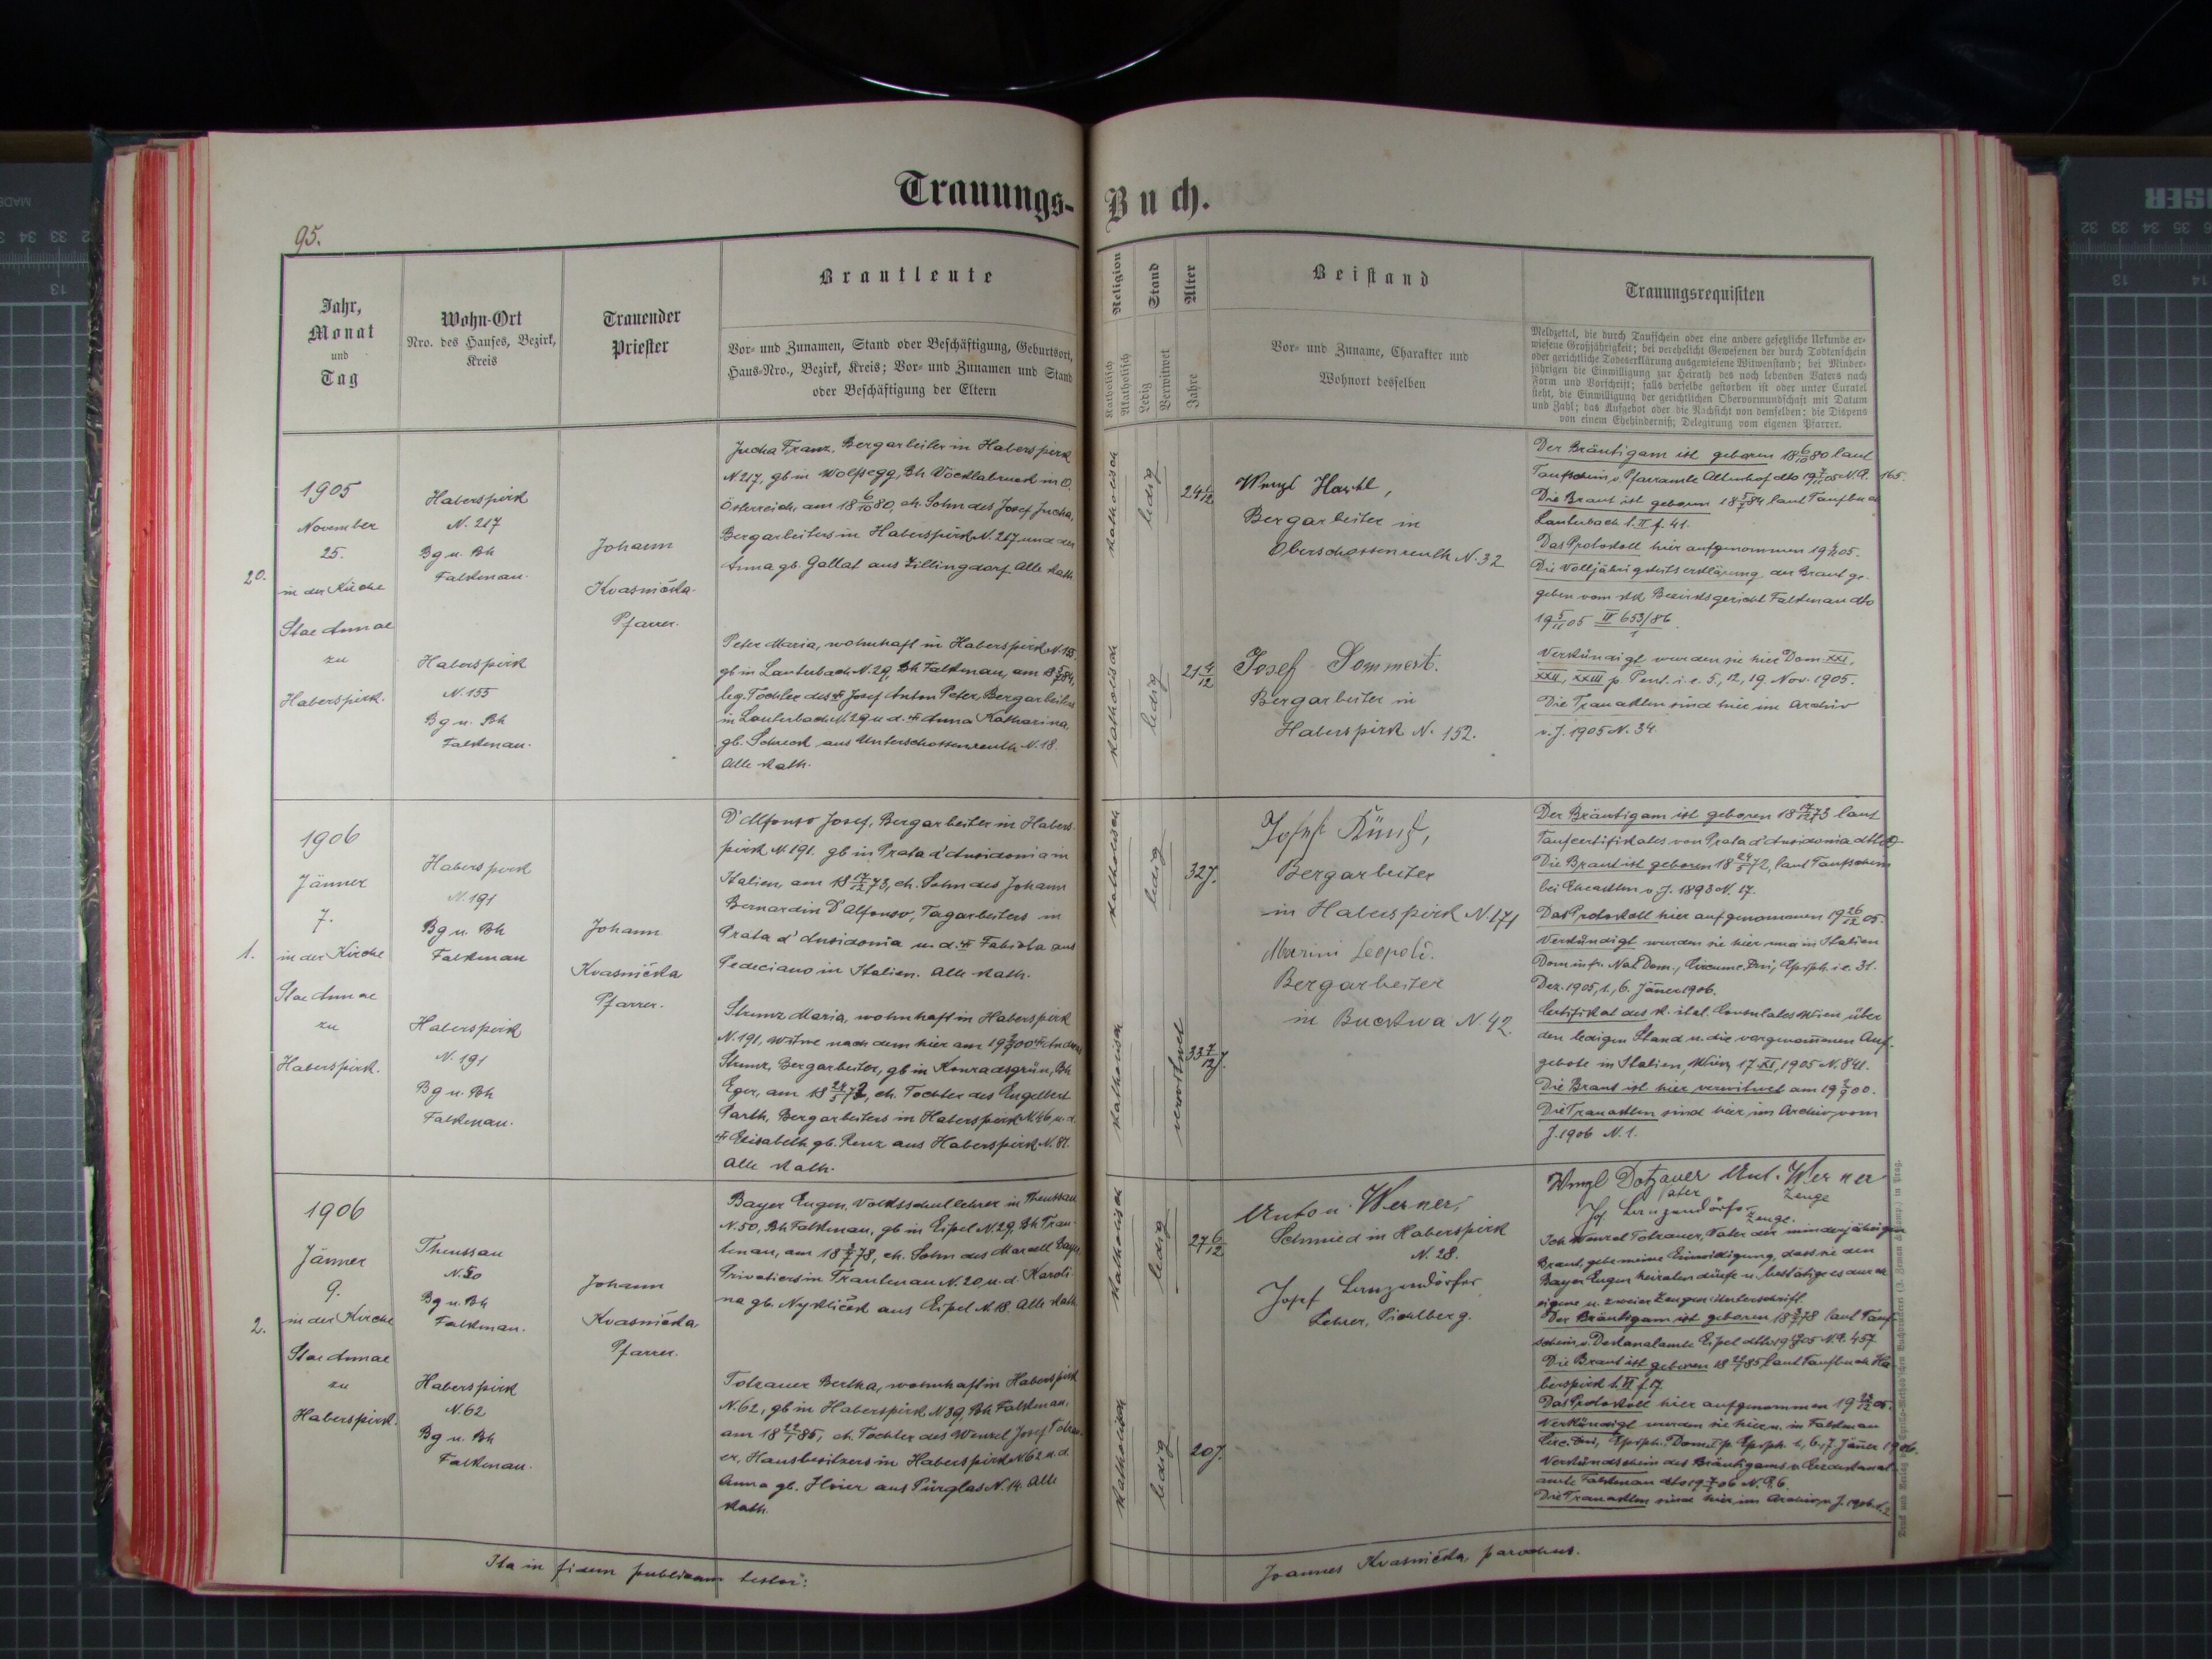 Trauungs-Buch.
95.
Jahr,
Monat
und
Tag
Wohn-Ort
Nro. des Hauses, Bezirk,
Kreis
Trauender
Priester
Brautleute
Vor- und Zunamen, Stand oder Beschäftigung, Geburtsort,
Haus-Nro., Bezirk, Kreis; Vor- und Zunamen und Stand
oder Beschäftigung der Eltern
Religion
Katholisch
Akatholisch
Stand
Ledig
Verwitwet
Alter
Jahre
Beistand
Vor- und Zuname, Charakter und
Wohnort desselben
Trauungsrequisiten
Meldzettel, die durch Taufschein oder eine andere gesetzliche Urkunde er-
wiesene Großjährigkeit; bei verehelicht Gewesenen der durch Todtenschein
oder gerichtliche Todeserklärung ausgewiesene Witwenstand; bei Minder-
jährigen die Einwilligung zur Heirath des noch lebenden Vaters nach
Form und Vorschrift; falls derselbe gestorben ist oder unter Curatel
steht, die Einwilligung der gerichtlichen Obervormundschaft mit Datum
und Zahl; das Aufgebot oder die Nachsicht von demselben; die Dispens
von einem Ehehinderniß; Delegirung vom eigenen Pfarrer.
20.
1905
November
25.
in der Kirche
Stae Annae
zu
Haberspirk.
Haberspirk
N. 217
Bg u. Bh
Falkenau.
Haberspirk
N. 155
Bg u. Bh
Falkenau.
Johann
Kvasnička
Pfarrer.
Jucha Franz, Bergarbeiter in Haberspirk
N 217, gb in Wolfsegg, Bh Vöcklabruck in O.
Österreich, am 18 6/10 80, eh. Sohn des Josef Jucha,
Bergarbeiters in Haberspirk N. 217 und der
Anna gb. Gallat aus Zillingdorf. Alle kath.
Peter Maria, wohnhaft in Haberspirk N. 155
gb in Lauterbach N. 29, Bh Falkenau, am 18 5/7 84,
leg. Tochter des † Josef Anton Peter, Bergarbeiters
in Lauterbach N. 29 u. d. † Anna Katharina,
gb. Schreck aus Unterschossenreuth N. 18.
Alle kath.
katholisch
ledig
katholisch
ledig
21 4/12
Wenzl Hartl,
Bergarbeiter in
Oberschossenreuth N. 32
Josef Sommert.
Bergarbeiter in
Haberspirk N. 152.
Der Bräutigam ist geboren 18 6/10 80 laut
Taufschein v. Pfarramte Altenhof 165.
Die Braut ist geboren 18 5/7 84 laut Taufbuch
Lauterbach t. II f. 41.
Das Protokoll hier aufgenommen
Die Volljährigkeitserklärung der Braut ge-
geben vom kk Bezirksgericht Falkenau dto
19 5/11 05
Verkündigt wurden sie hier Dom. XXI,
XXII, XXIII p. Pent. i. e. 5., 12, 19. Nov. 1905.
Die Trauakten sind hier im Archiv
v. J. 1905 N. 34
1.
1906
Jänner
7.
in der Kirche
Stae Annae
zu
Haberspirk.
Haberspirk
N. 191
Bg u. Bh
Falkenau
Haberspirk
N. 191
Bg u. Bh
Falkenau.
Johann
Kvasnička
Pfarrer.
D'Alfonso Josef, Bergarbeiter in Habers-
pirk N 191. gb in Prata d'Ansidonia in
Italien, am 18 17/12 73, eh. Sohn des Johann
Bernardin D'Alfonso, Tagarbeiters in
Prata d'Ansidonia u. d. † Fabiola aus
Pedeciano in Italien. Alle kath.
Strunz Maria, wohnhaft in Haberspirk
N. 191, Witwe nach dem hier am
Strunz, Bergarbeiter, gb in Konradsgrün, Bh
Eger, am 18 24/5 72, eh. Tochter des Engelbert
Parth, Bergarbeiters in Haberspirk N. 46 u. d.
† Elisabeth gb. Renz aus Haberspirk N. 81.
Alle kath.
katholisch
ledig
32 J.
katholisch
verwitwet
33 7/12 J.
Josef Künzl,
Bergarbeiter
in Haberspirk N. 171
Marini Leopold.
Bergarbeiter
in Buckwa N. 42.
Der Bräutigam ist geboren 18 17/12 73 laut
Taufcertifikates von Prata d'Ansidonia
Die Braut ist geboren 18 24/5 72, laut Taufschein
bei Eheakten v. J. 1893 N. 17.
Das Protokoll hier aufgenommen 19 26/12 05.
Verkündigt wurden sie hier und in Italien
Dom infr. Nat Dom., Circumc. Dni, Epiph. i. e. 31.
Dez. 1905, 1., 6. Jäner 1906.
Certifikat des k. ital. Consulates Wien über
den ledigen Stand u. die vorgenommen Auf-
gebote in Italien, Wien 17. XI, 1905 N. 841.
Die Braut ist hier verwitwet am
Die Trauakten sind hier im Archiv vom
J. 1906 N. 1.
2.
1906
Jänner
9.
in der Kirche
Stae Annae
zu
Haberspirk.
Theussau
N. 50
Bg u. Bh
Falkenau.
Haberspirk
N. 62
Bg u. Bh
Falkenau.
Johann
Kvasnička
Pfarrer.
Bayer Eugen, Volksschullehrer in Theussau
N. 50, Bh Falkenau, gb in Eipel N. 29, Bh Trau-
tenau, am 18 78, eh. Sohn des Marcell Bayer
Privatiers in Trautenau N. 20 u. d. Karoli-
na gb. Nyklíček aus Eipel N. 18. Alle kath.
Totzauer Bertha, wohnhaft in Haberspirk
N. 62, gb in Haberspirk N 39, Bh Falkenau,
am 18 22/1 85, eh. Tochter des Wenzel Josef Totzau-
er, Hausbesitzers in Haberspirk N 62 u. d.
Anna gb. Hoier aus Pürglas N. 14. Alle
kath.
katholisch
ledig
27 6/12
katholisch
ledig
20 J.
Anton Werner,
Schmied in Haberspirk
N. 28.
Josef Lenzendörfer
Lehrer, Pichlberg.
Wenzl Dotzauer Ant. Werner
Vater Zeuge
Jos. Lenzendörfer
Zeuge.
Ich Wenzel Totzauer, Vater der minderjährigen
Braut, gebe meine Einwilligung, dass sie den
Bayer Eugen heiraten dürfe u. bestätige es durch
eigene u. zweier Zeugen Unterschrift.
Der Bräutigam ist geboren 18 78 laut Tauf-
schein v. Dekanalamte Eipel N. 457
Die Braut ist geboren 18 22/1 85 laut Taufbuch Ha-
berspirk t. VI f. 17
Das Protokoll hier aufgenommen
Verkündigt wurden sie hier u. in Falkenau
Circ. Dni, Epiph. Dom. I. p. Epiph. 1., 6., 7. Jäner 1906.
Verkündschein des Bräutigams v. Erzdekanal-
amte Falkenau
Die Trauakten sind hier im Archiv v. J. 1906 N. 2
Ita in fidem publicam testor:
Joannes Kvasnička, parochus.